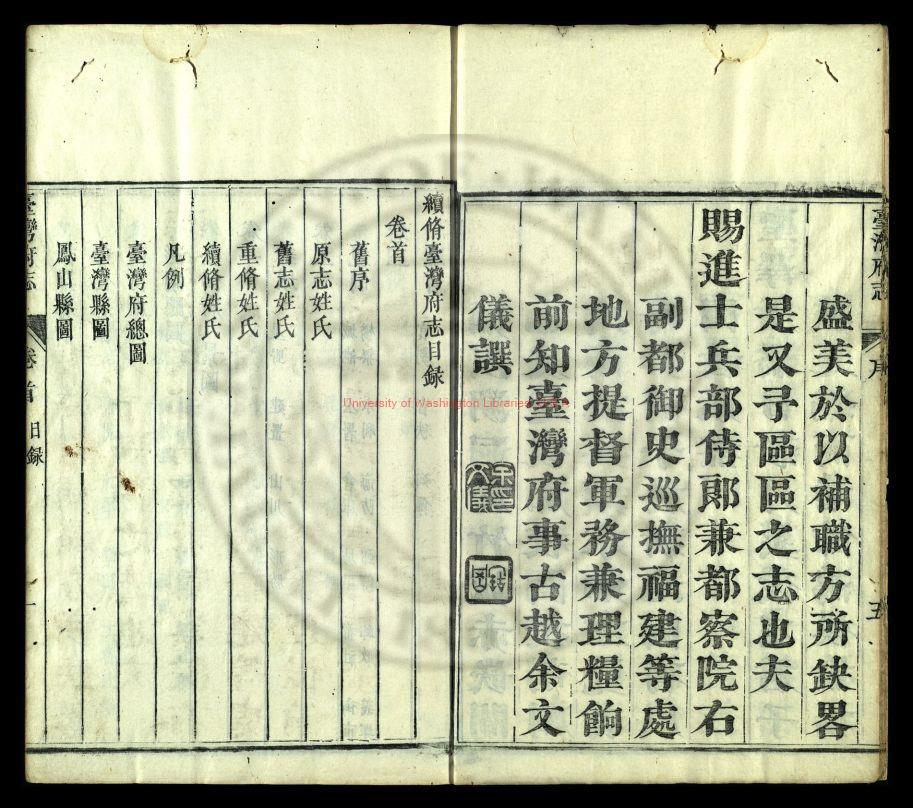 臺灣府志
序
五
盛美於以補職方所缺畧
是又予區區之志也夫
賜進士兵部侍郎兼都察院右
副都御史巡撫福建等處
地方提督軍務兼理糧餉
前知臺灣府事古越余文
儀譔
續脩臺灣府志目録
卷首
舊序
原志姓氏
舊志姓氏
重脩姓氏
續脩姓氏
凡例
臺灣府總圖
臺灣縣圖
鳳山縣圖
臺灣府志
卷首
目録
一
University of Washington Libraries